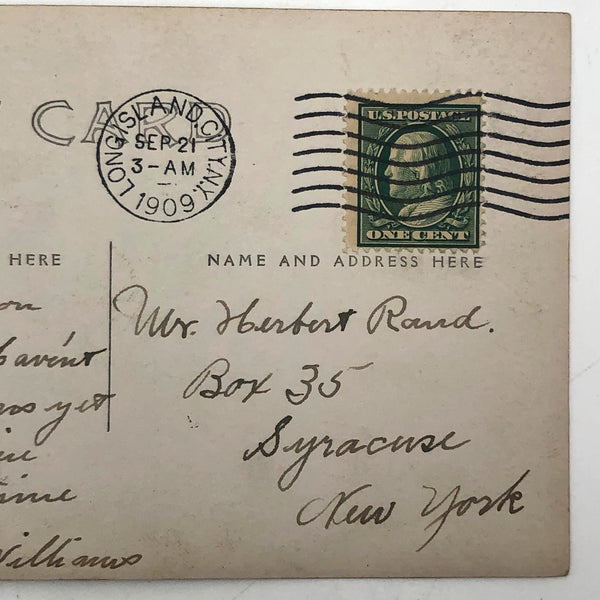 CARD
LONG ISLAND CITY, N.Y.
SEP 21
3-AM
1909
U.S. POSTAGE
ONE CENT
HERE
NAME AND ADDRESS HERE
on
haven't
yet
time
Williams
Mr. Herbert Rand.
Box 35
Syracuse
New York